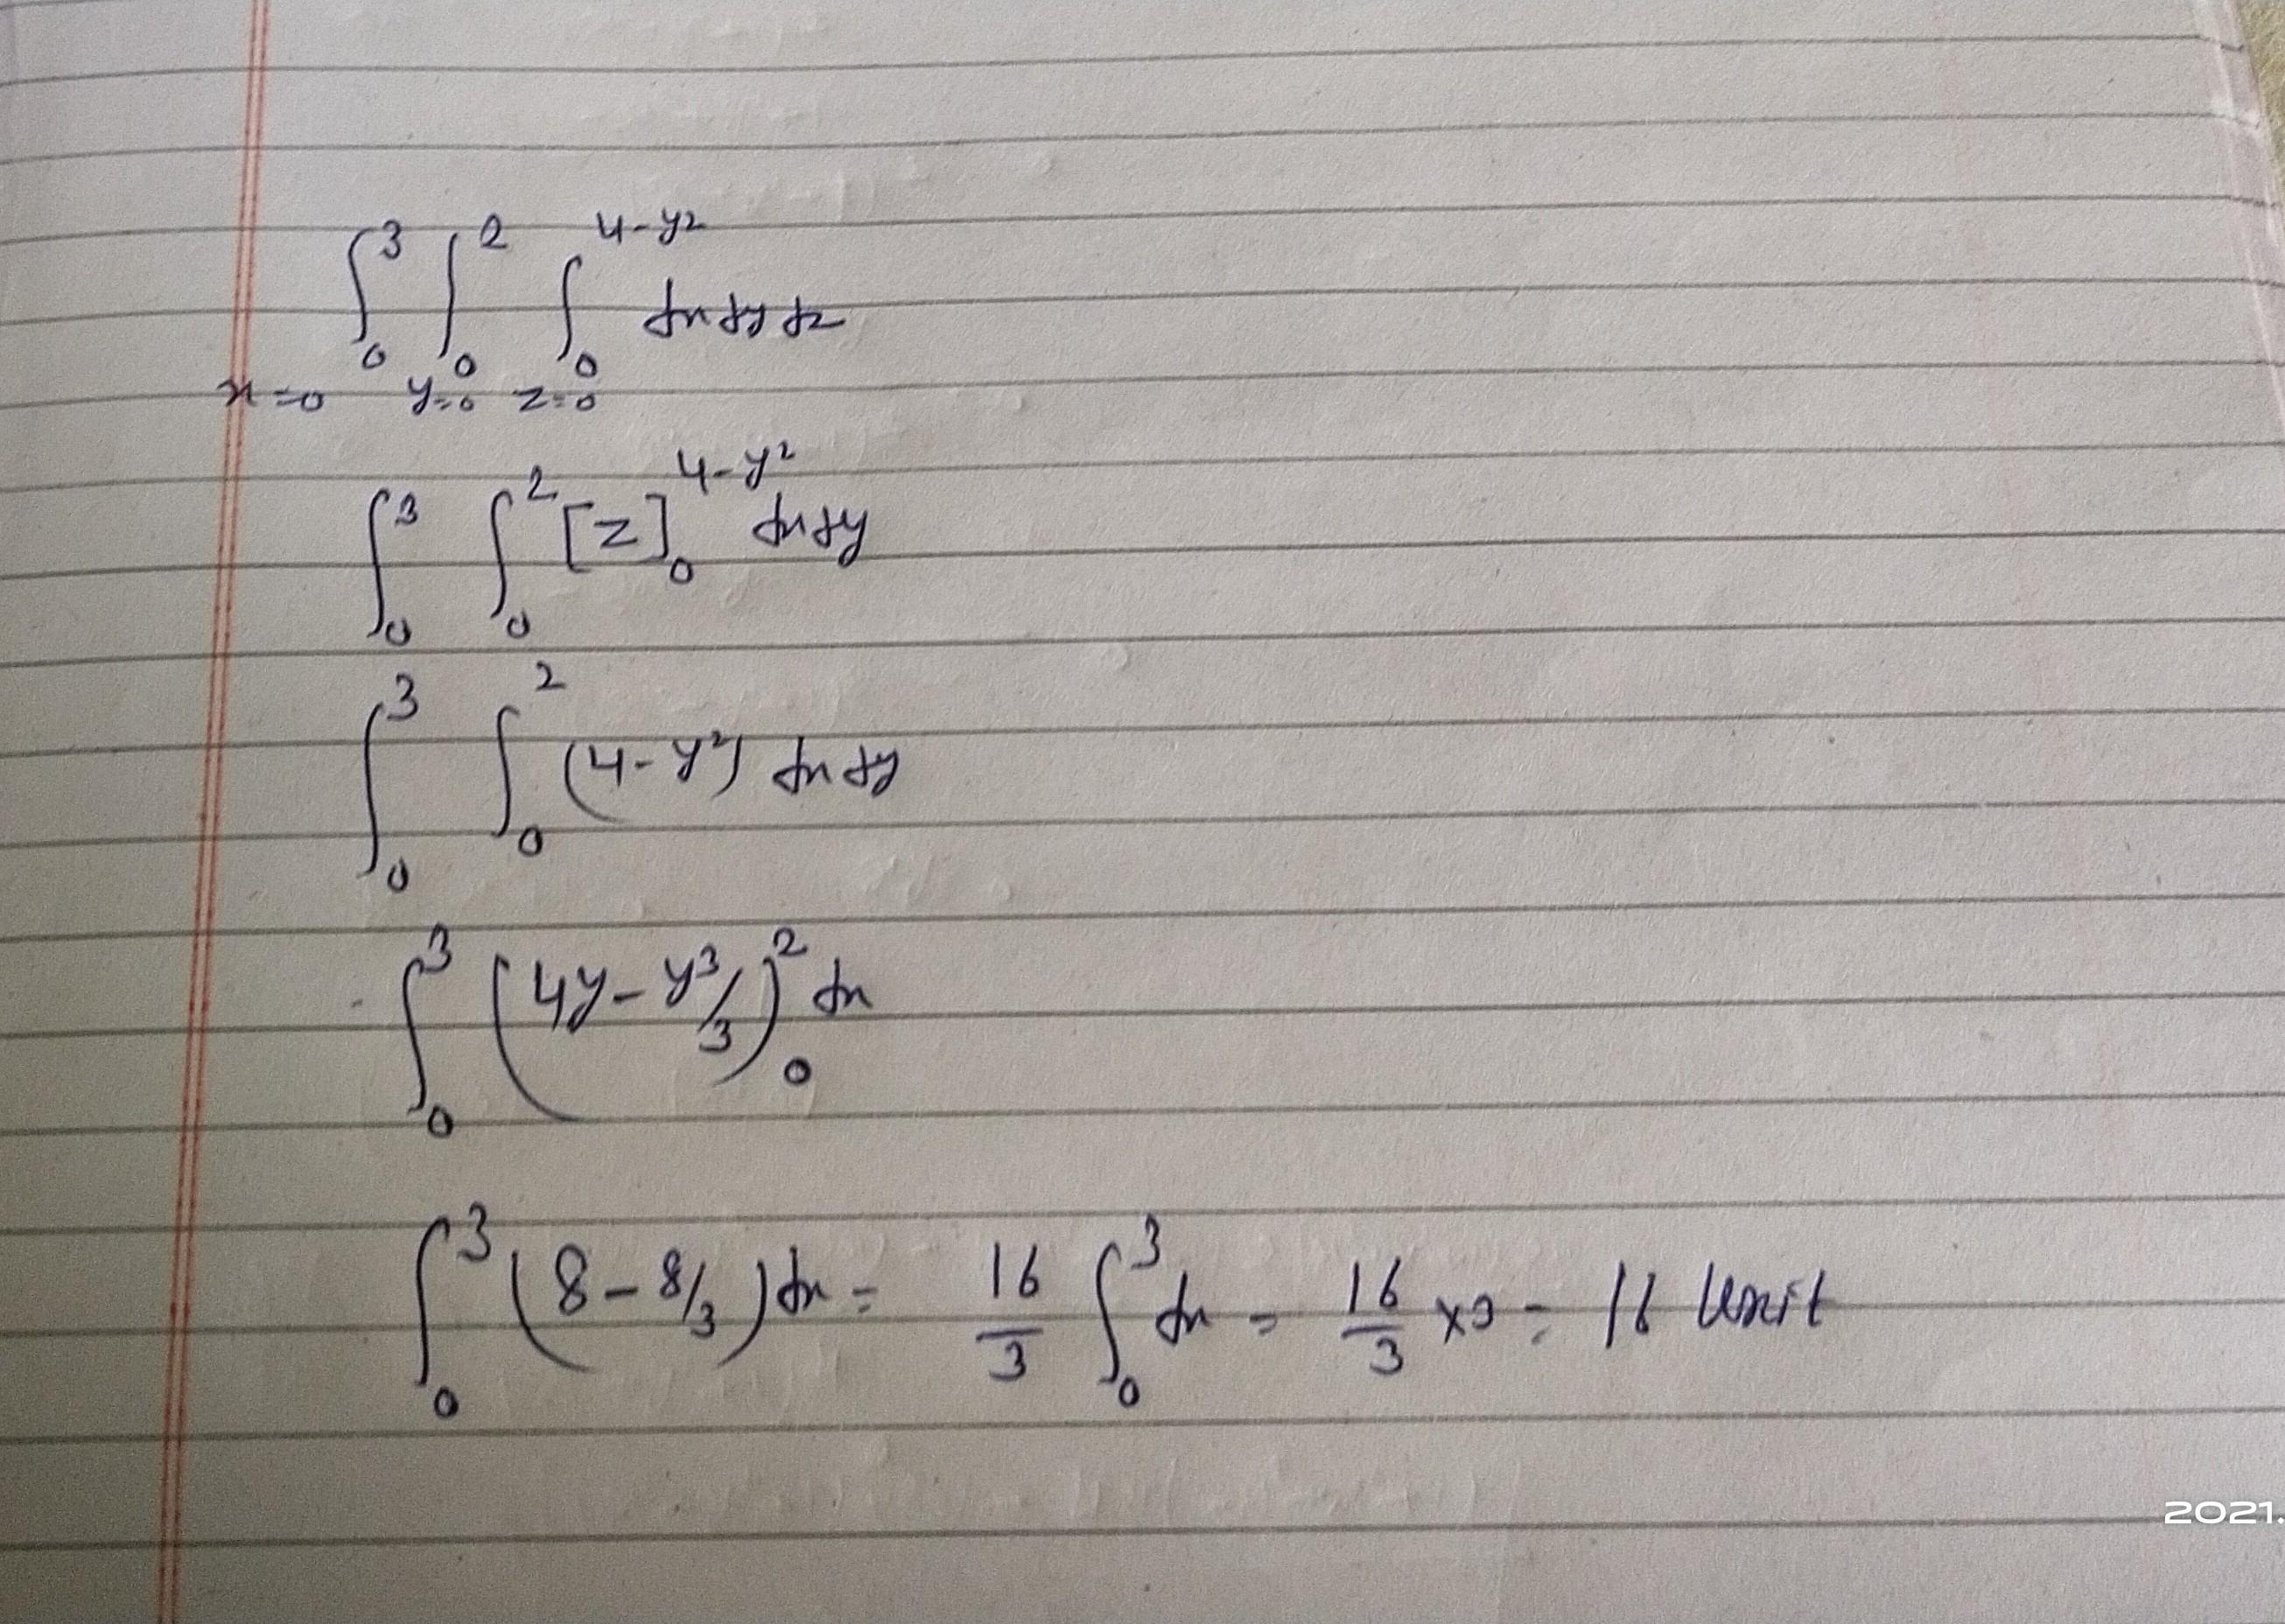 ∫₀³ ∫₀² ∫₀^(4-y²) dx dy dz
x=0 y=0 z=0
∫₀³ ∫₀² [z]₀^(4-y²) dx dy
∫₀³ ∫₀² (4-y²) dx dy
∫₀³ (4y - y³/3)₀² dx
∫₀³ (8 - 8/3) dx = 16/3 ∫₀³ dx = 16/3 × 3 = 16 Unit
2021.